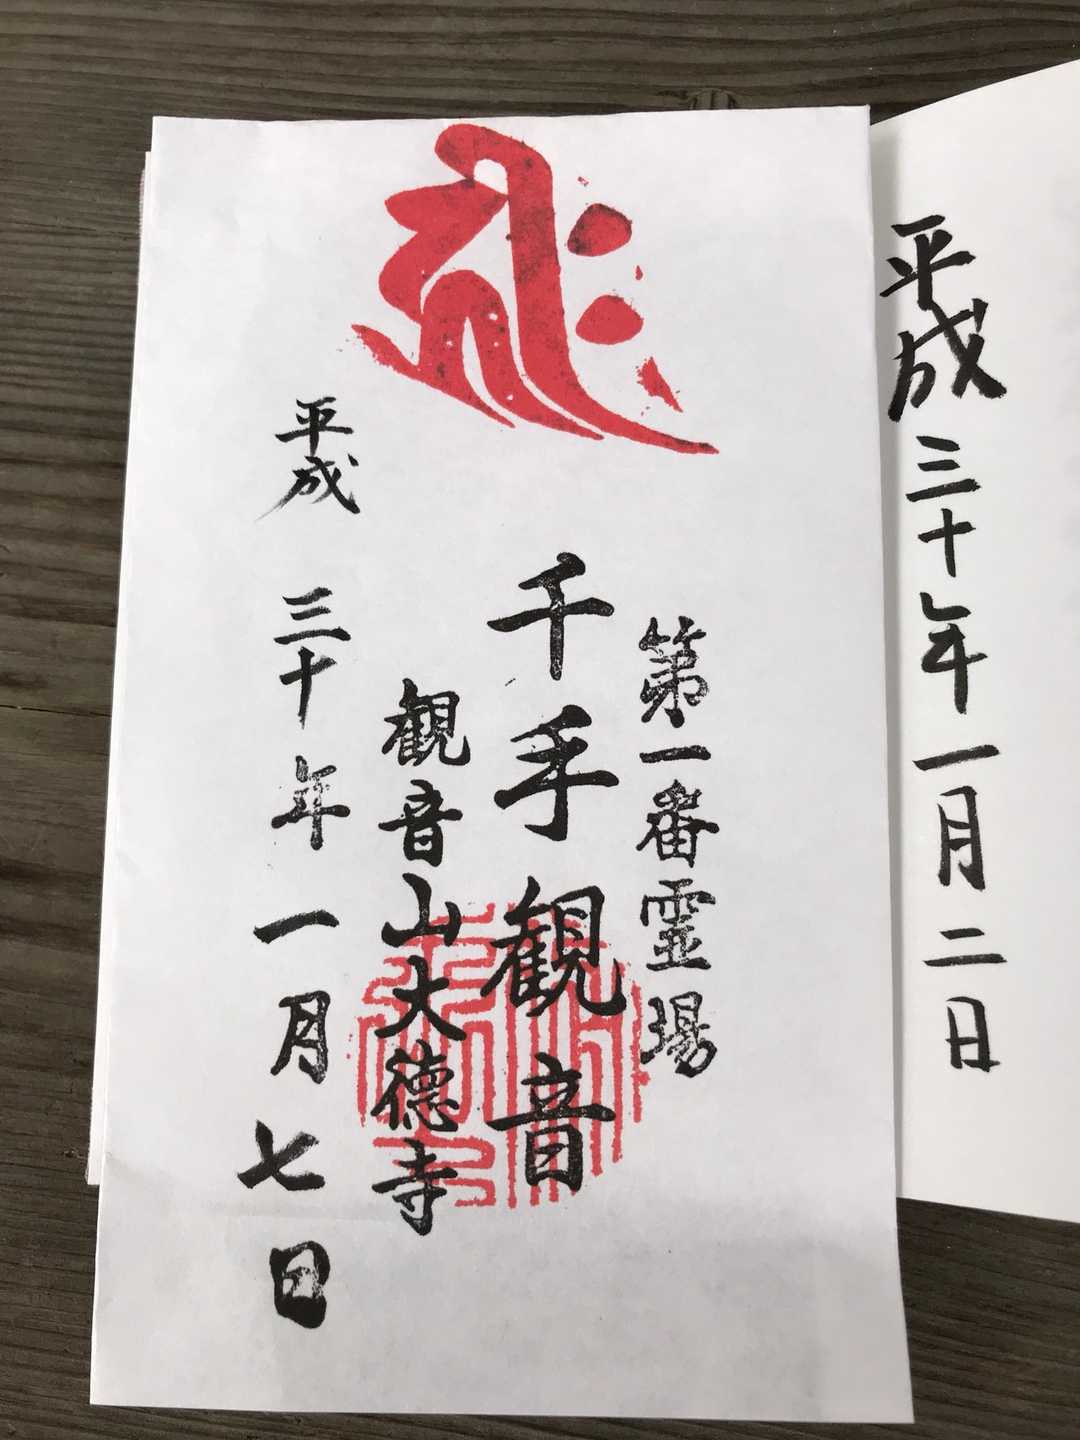 平成三十年一月二日
第一番霊場
千手観音
観音山大徳寺
平成三十年一月七日